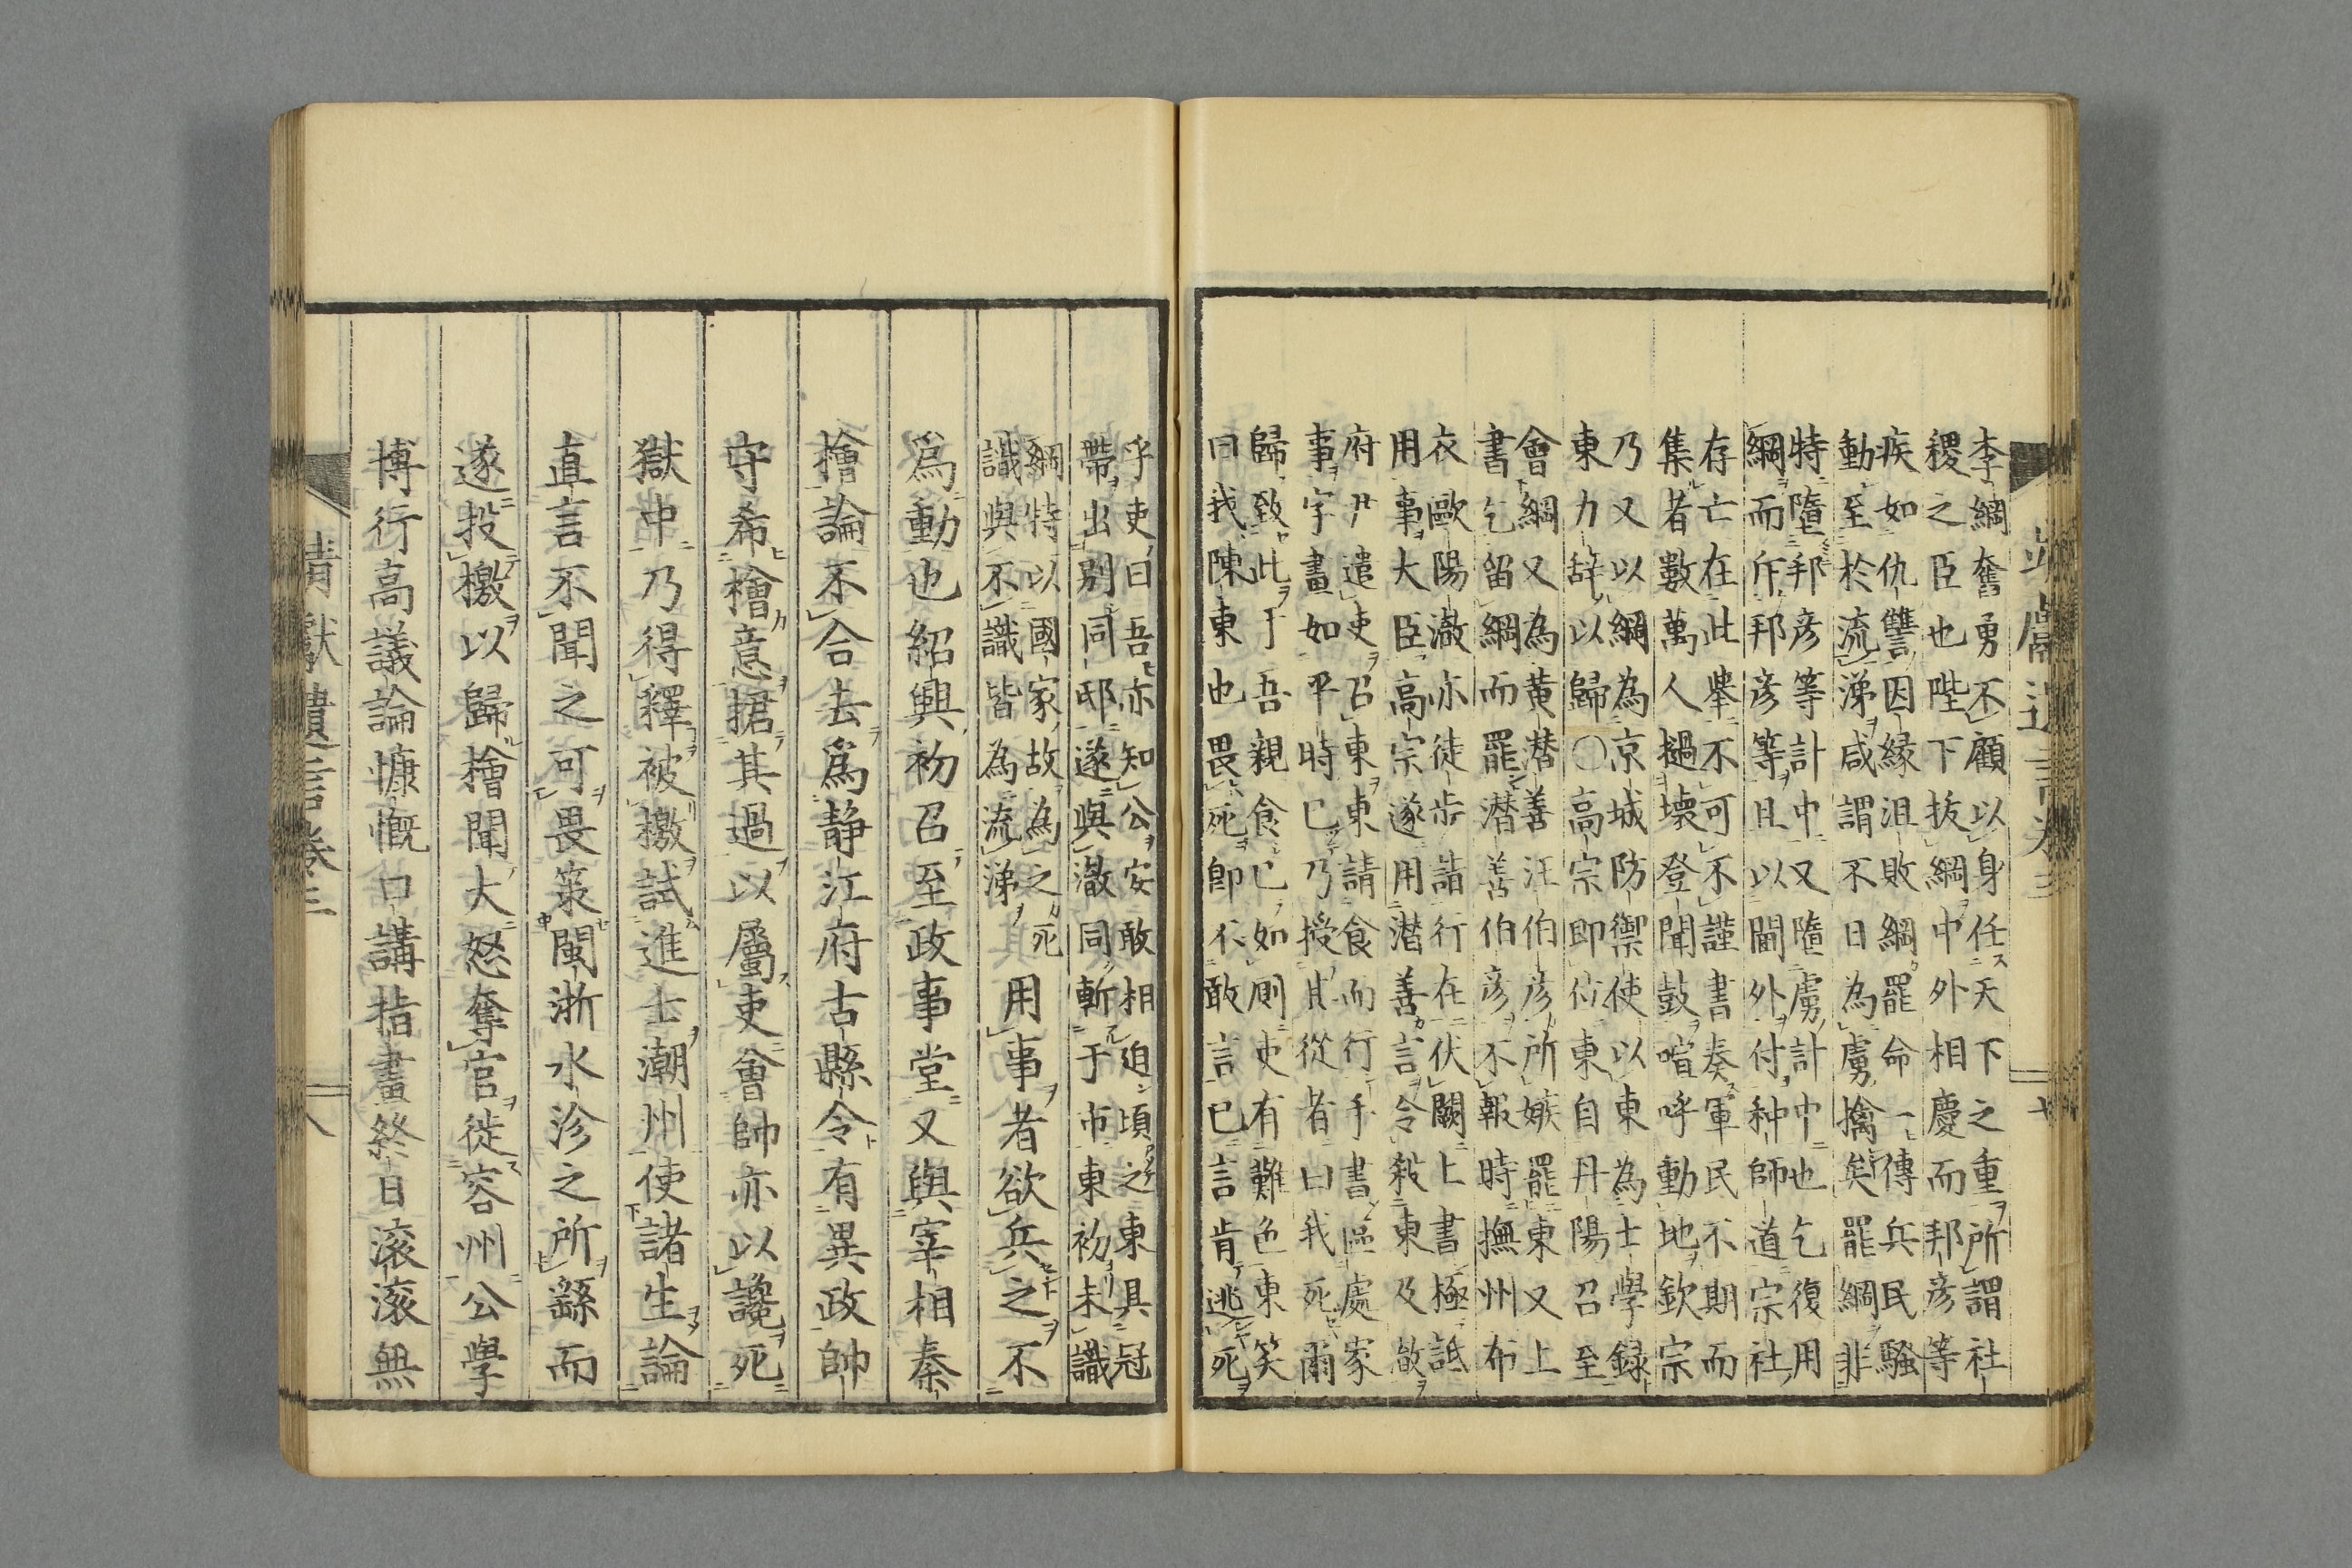 李綱奮勇不顧以身任天下之重所謂社
稷之臣也陛下拔綱中外相慶而邦彦等
疾如仇讐因縁沮敗綱罷命一傳兵民騷
動至於流涕咸謂不日為虜擒矣罷綱非
特墮邦彦等計中又墮虜計中也乞復用
綱而斥邦彦等且以閫外付种師道宗社
存亡在此舉不可不謹書奏軍民不期而
集者數萬人撾壊登聞鼓喧呼動地欽宗
乃又以綱為京城防禦使以東為士學録
東力辞以歸〇高宗即位東自丹陽召至
會綱又為黄潜善汪伯彦所嫉罷東又上
書乞留綱而罷潜善伯彦不報時撫州布
衣歐陽澈亦徒歩詣行在伏闕上書極詆
用事大臣高宗遂用潜善言令殺東及澈
府尹遣吏召東東請食而行手書區處家
事字畫如平時已乃授其從者曰我死爾
歸致此于吾親食已如厠吏有難色東笑
曰我陳東也畏死即不敢言已言肯逃死
乎吏曰吾亦知公安敢相迫頃之東具冠
帶出別同邸遂與澈同斬于市東初未識
綱特以國家故為之死
識與不識皆為流涕
用事者欲兵之不
爲動也紹興初召至政事堂又與宰相秦
檜論不合去爲静江府古縣令有異政帥
守希檜意捃其過以屬吏會帥亦以讒死
獄中乃得釋被檄試進士潮州使諸生論
直言不聞之可畏策閩浙水沴之所繇而
遂投檄以歸檜聞大怒奪官徙容州公學
博行高議論慷慨口講指畫終日滚滚無
靖獻遺言卷三
八